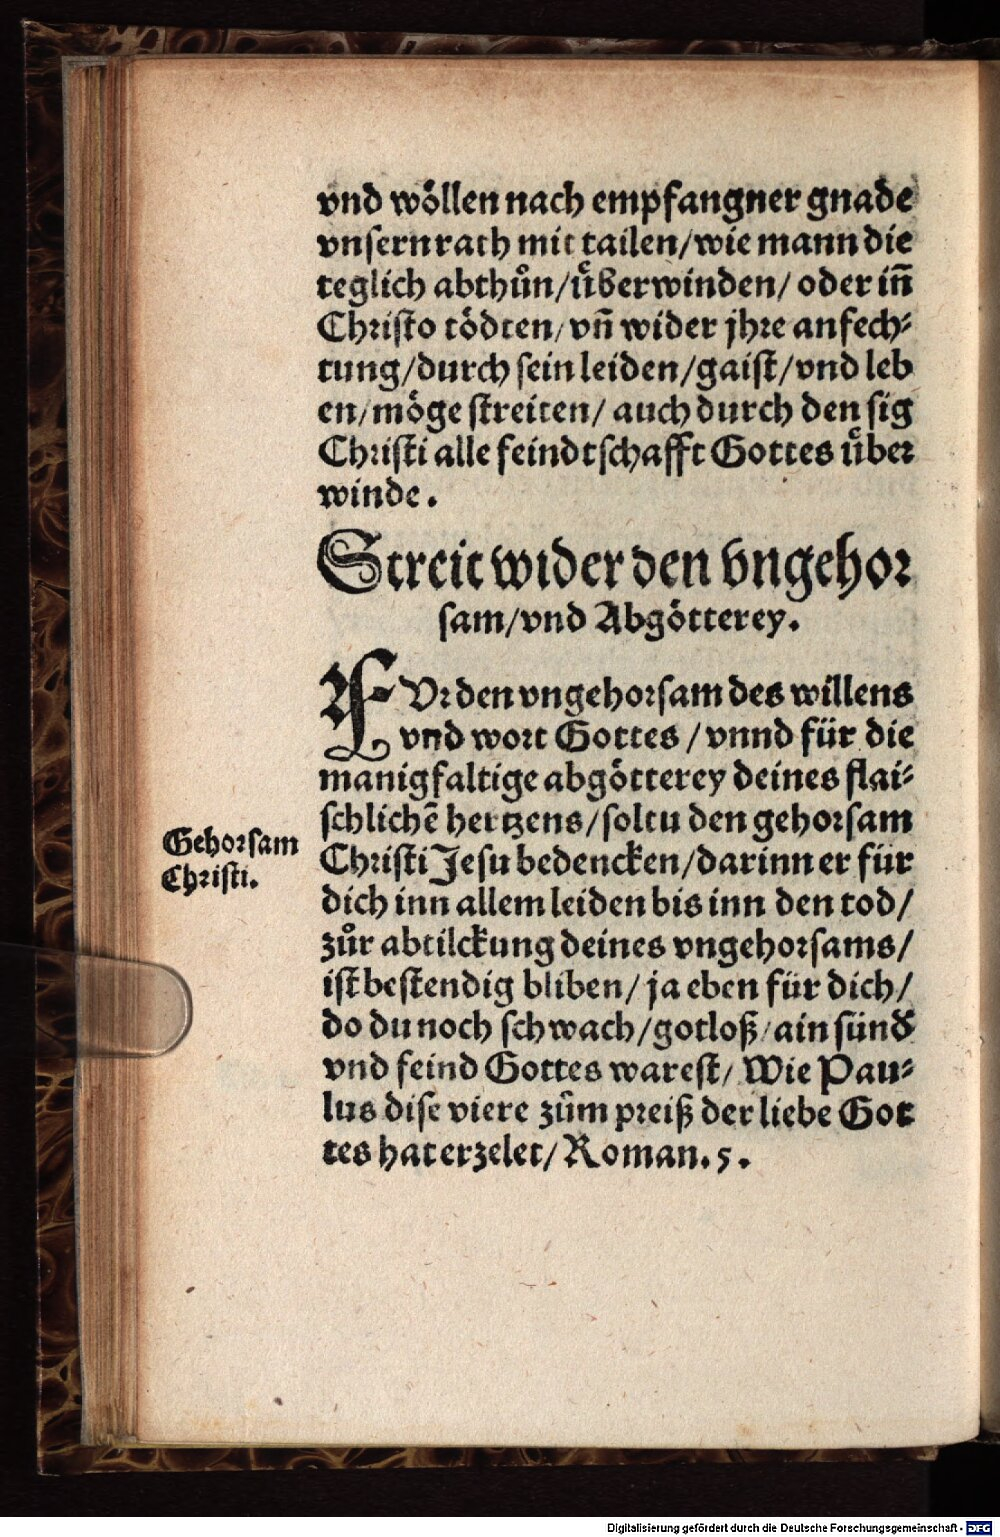 vnd wöllen nach empfangner gnade
vnsern rath mit tailen/wie mann die
teglich abthuͦn/uͤberwinden/ oder iñ
Christo tödten/vñ wider jhre anfech⸗
tung/durch sein leiden/gaist/vnd leb
en/möge streiten/ auch durch den sig
Christi alle feindtschafft Gottes uͤber
winde.
Streit wider den vngehor
sam/vnd Abgötterey.
FVr den vngehorsam des willens
vnd wort Gottes /vnnd für die
manigfaltige abgötterey deines flai⸗
schlichē hertzens/soltu den gehorsam
Gehorsam
Christi.
Christi Jesu bedencken/darinn er für
dich inn allem leiden bis inn den tod/
zuͦr abtilckung deines vngehorsams/
ist bestendig bliben/ ja eben für dich/
do du noch schwach/gotloß/ain sünd
vnd feind Gottes warest/ Wie Pau⸗
lus dise viere zuͦm preiß der liebe Got
tes hat erzelet/Roman.5.
Digitalisierung gefördert durch die Deutsche Forschungsgemeinschaft - DFG